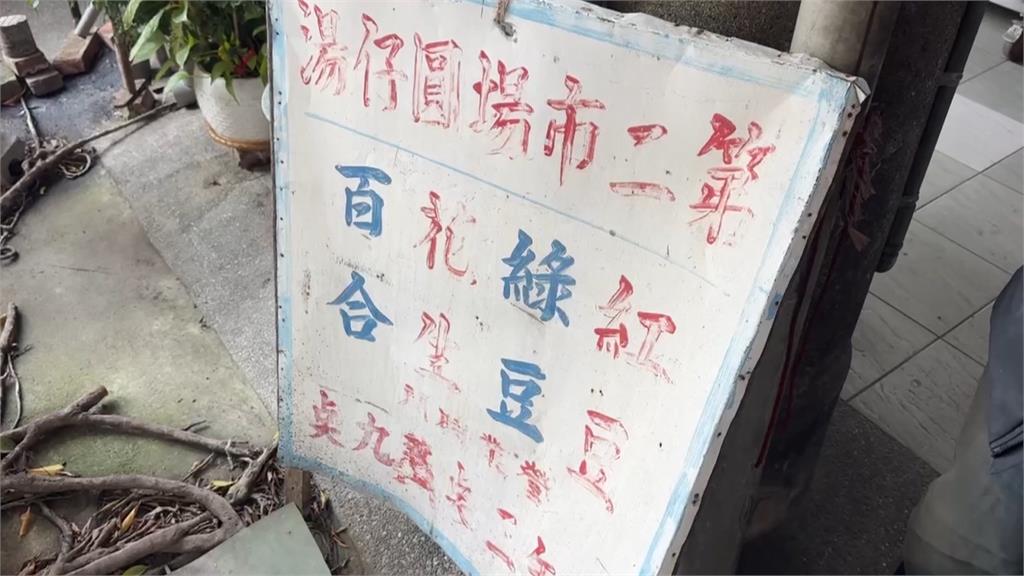 第二市場圓仔湯
紅豆
綠豆
花生
百合